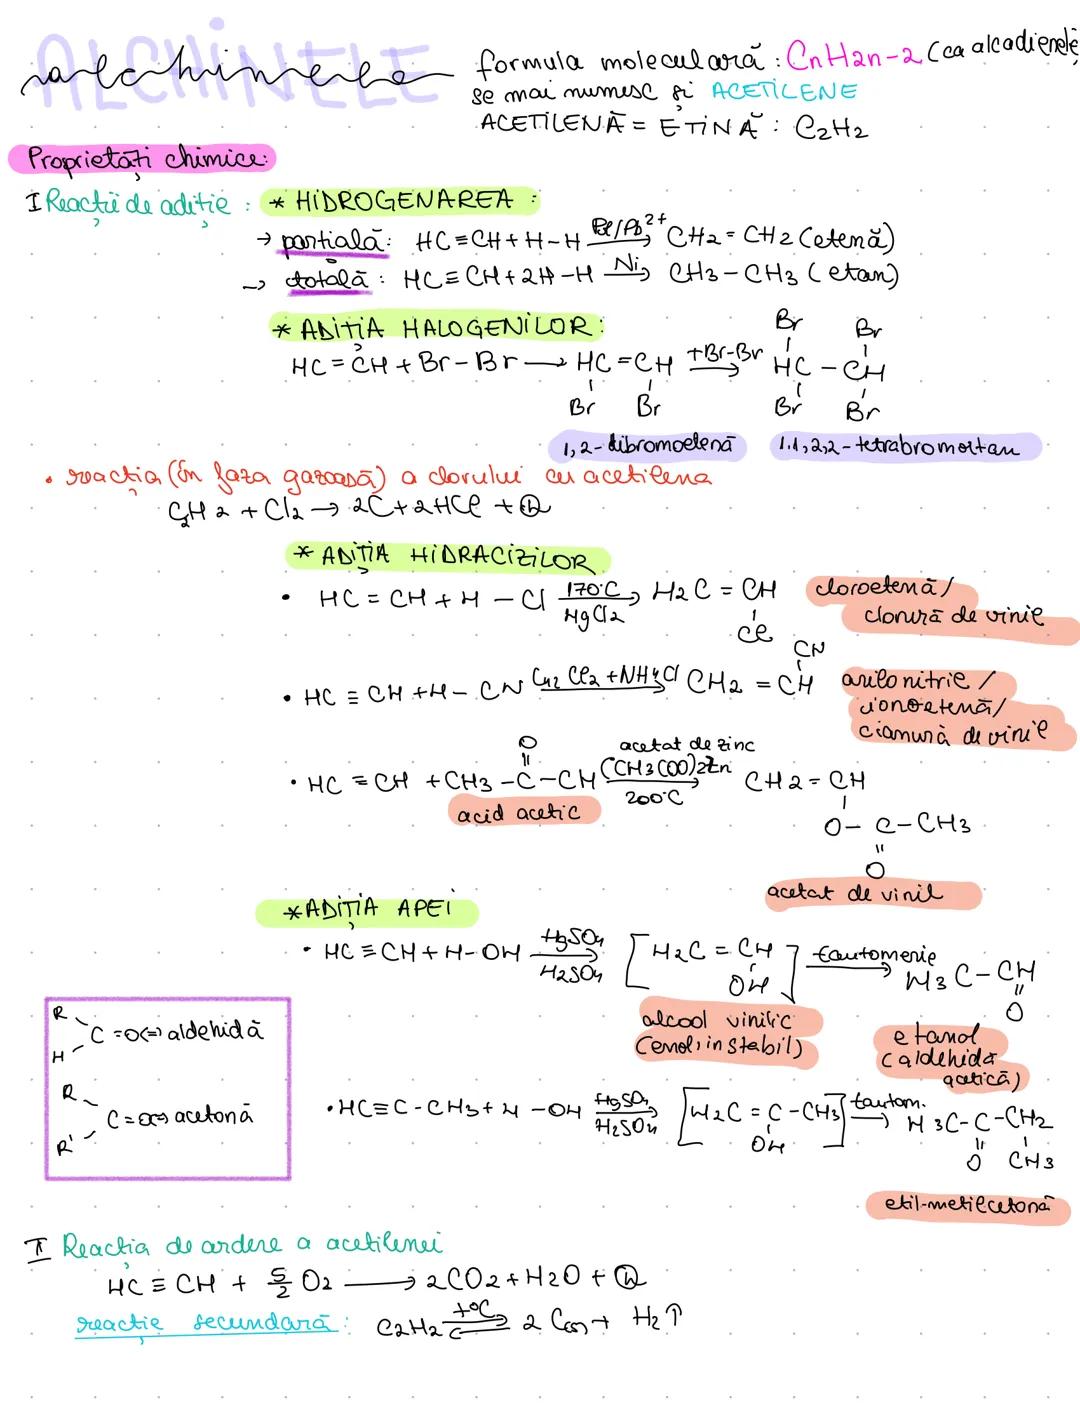 ALCHINELE
alchinele
formula moleculară : CnH2n-2 (ca alcadienele)
se mai numesc și ACETILENE
ACETILENĂ = ETINĂ : C2H2
Proprietăți chimice:
I Reacții de adiție : * HIDROGENAREA :
→ parțială: HC≡CH + H-H Pd/Pb2+ → CH2 = CH2 (etenă)
→ totală : HC≡CH + 2H-H Ni → CH3-CH3 (etan)
* ADIȚIA HALOGENILOR:
Br Br
HC=CH + Br-Br → HC=CH +Br-Br → HC-CH
Br Br Br Br
1,2-dibromoetenă 1.1,2,2-tetrabromoetan
• reacția (în faza gazoasă) a clorului cu acetilena
C2H2 + Cl2 → 2C + 2HCl + Q
* ADIȚIA HIDRACIZILOR
• HC = CH + H - Cl 170°C → H2C = CH cloroetenă/
HgCl2 Cl clorură de vinil
CN
• HC ≡ CH + H - CN Cu2Cl2 + NH4Cl → CH2 = CH acrilonitril /
cianoetenă/
cianură de vinil
O acetat de zinc
• HC ≡ CH + CH3 - C - CH (CH3COO)2Zn → CH2 = CH
acid acetic 200°C
O - C - CH3
O
acetat de vinil
* ADIȚIA APEI
• HC ≡ CH + H-OH HgSO4 → [H2C = CH] tautomerie → H3C - CH
H2SO4 OH O
alcool vinilic etanol
(enol, instabil) (aldehida
acetică)
R
C =O<=> aldehidă
H
R
C=O<=> acetonă
R'
• HC≡C-CH3 + H-OH HgSO4 → [H2C = C-CH3] tautom. → H3C-C-CH2
H2SO4 OH O CH3
etil-metilcetonă
II Reacția de ardere a acetilenei
HC ≡ CH + 5/2 O2 → 2CO2 + H2O + Q
reacție secundară: C2H2 t°C ⇌ 2 C(s) + H2↑